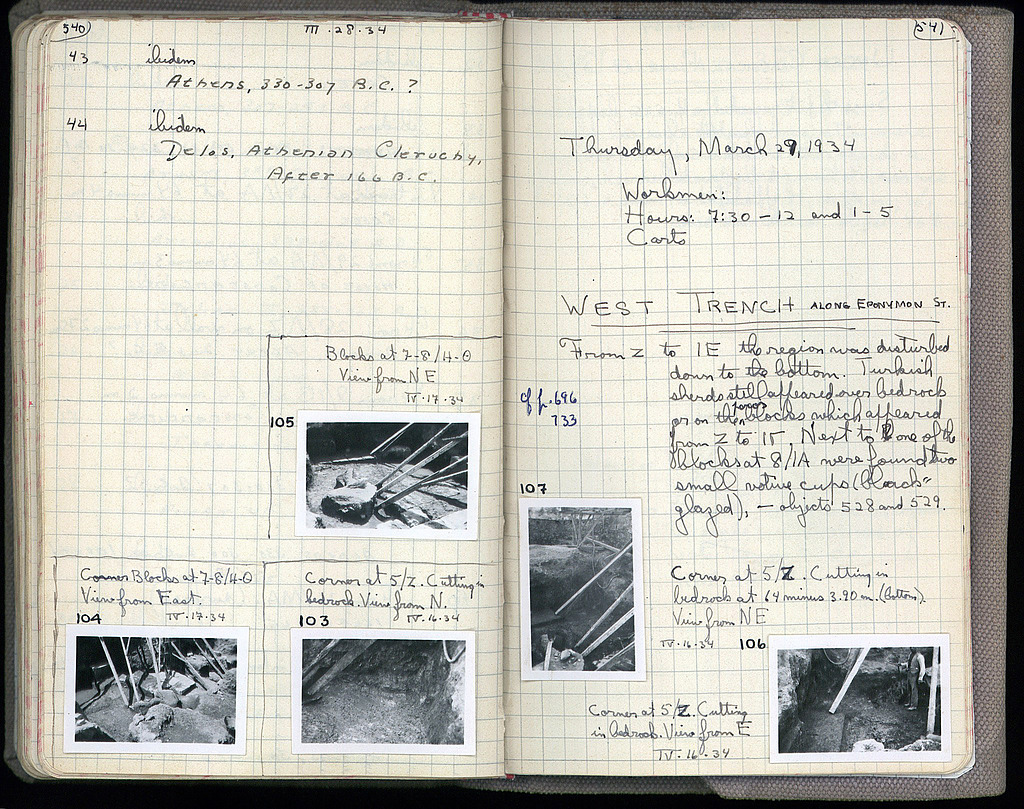 540
III.28.34
43 ibidem
Athens, 330-307 B.C. ?
44 ibidem
Delos, Athenian Cleruchy,
After 166 B.C.
Blocks at 7-8/H-Θ
View from NE
IV.17.34
105
Corner Blocks at 7-8/H-Θ
View from East.
IV.17.34
104
Corner at 5/Z. Cutting in
bedrock. View from N.
IV.16.34
103
541
Thursday, March 29, 1934
Workmen:
Hours: 7:30 - 12 and 1 - 5
Carts
WEST TRENCH ALONG EPONYMON ST.
From Z to IE the region was disturbed
down to the bottom. Turkish
sherds still appeared over bedrock
or on the poros blocks which appeared
from Z to IΓ. Next to one of the
blocks at 8/IA were found two
small votive cups (black-
glazed), — objects 528 and 529.
cf p. 696
733
107
Corner at 5/Z. Cutting in
bedrock at 64 minus 3.90 m. (bottom).
View from NE
IV.16.34
106
Corner at 5/Z. Cutting
in bedrock. View from E
IV.16.34